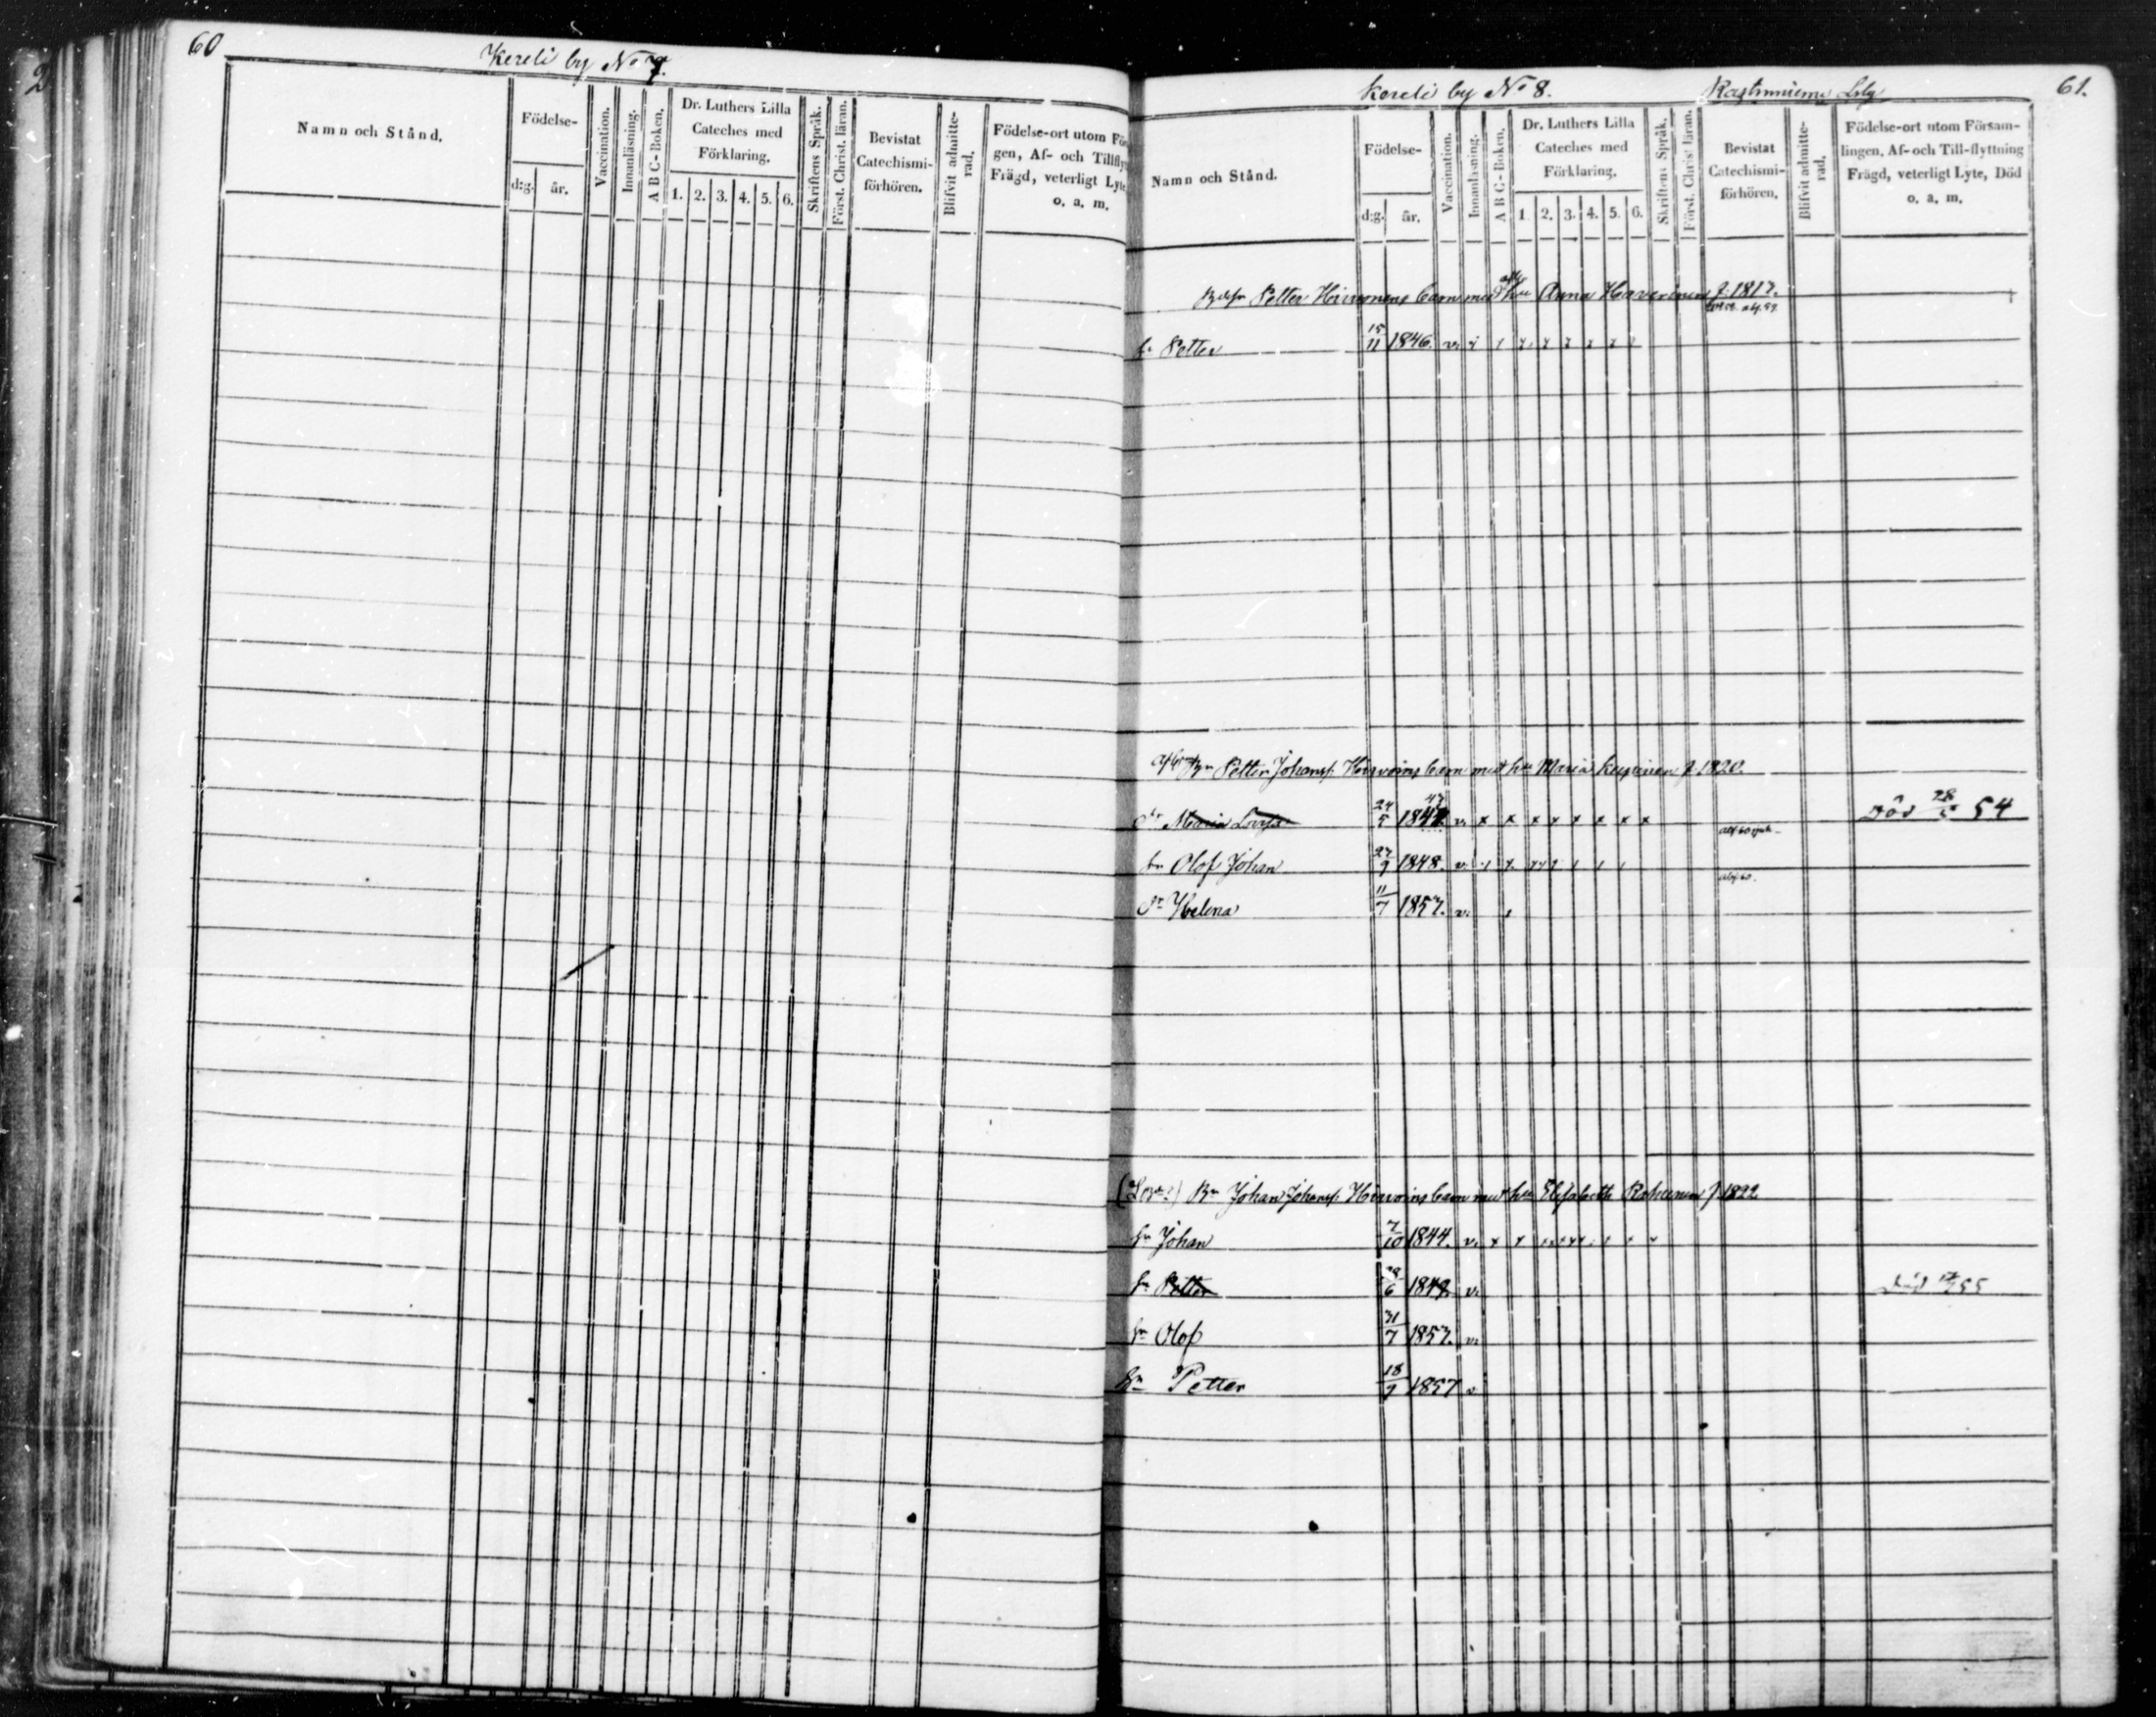 60
Kereli by No 7.
Namn och Stånd.
Födelse-
d:g.
år.
Vaccination.
Innanläsning.
A B C-Boken.
Dr. Luthers Lilla
Cateches med
Förklaring.
1. 2. 3. 4. 5. 6.
Skriftens Språk.
Först. Christ. läran.
Bevistat
Catechismi-
förhören.
Blifvit admitte-
rad.
Födelse-ort utom För
gen, Af- och Tillfly
Frägd, veterligt Lyte
o. a. m.
Kereli by No 8.
61.
Namn och Stånd.
Födelse-
d:g.
år.
Vaccination.
Innanläsning.
A B C-Boken.
Dr. Luthers Lilla
Cateches med
Förklaring.
1. 2. 3. 4. 5. 6.
Skriftens Språk.
Först. Christ läran.
Bevistat
Catechismi-
förhören.
Blifvit admitte-
rad.
Födelse-ort utom Försam-
lingen, Af- och Till-flyttning
Frägd, veterligt Lyte, Död
o. a. m.
Petter Hirvonens barn med Anna Haverinen f. 1817.
Sn Petter 15/11 1846. v.
Petter Johansf. Hirvoins barn med hu Maria f. 1820.
Dr Maria Lovisa 24/5 1847 v. x x x x x x x x Död 28/5 54
Sn Olof Johan 27/9 1848. v.
Dr Helena 11/7 1857. v.
Bn Johan Johansf. Hirvoins barn med hu Elisabeth f 1822
Sn Johan 7/10 1844. v.
Sn Petter 28/6 1849 v. Död 55
Sn Olof 31/7 1852. v.
Sn Petter 18/9 1857 v